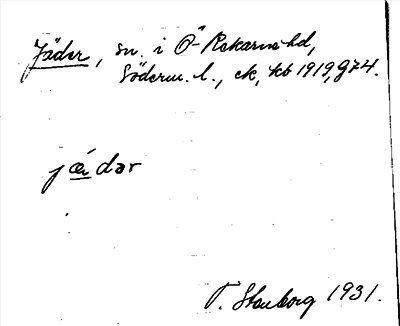 Jäder, sn. i Ö-Rekarne hd,
Söderm. l., ek, kb 1919, 974.
jæ̀dər
T. Stenborg 1931.